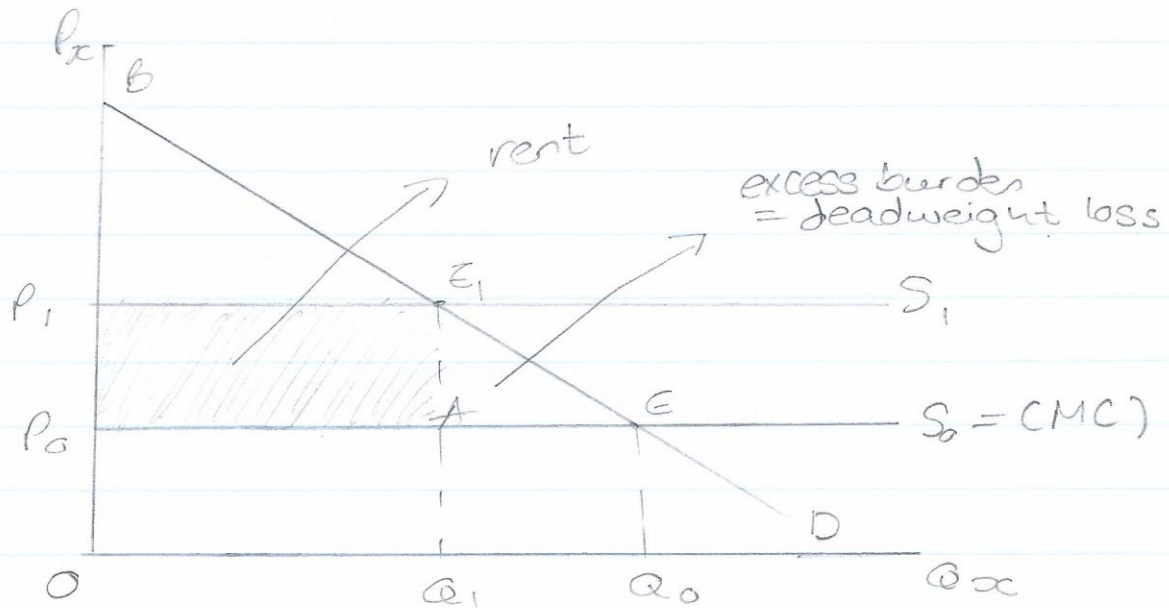 Px
B
rent
excess burden
= deadweight loss
P1
E1
S1
P0
A
E
S0 = (MC)
D
O
Q1
Q0
Qx